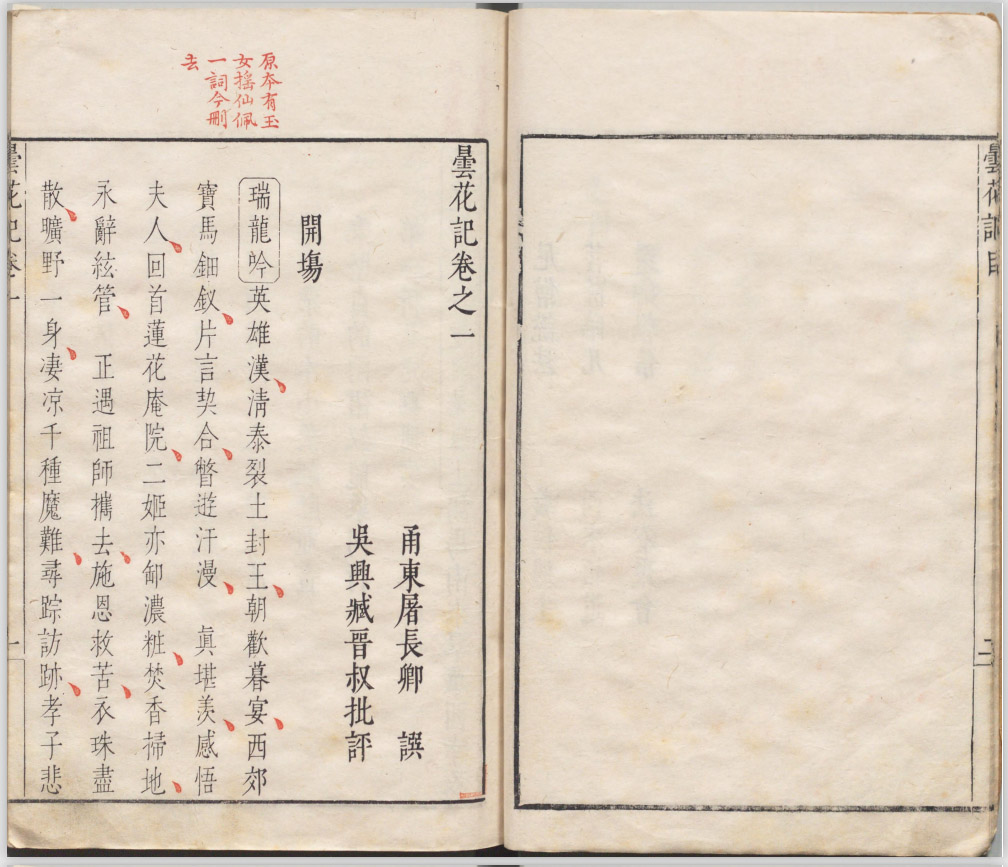 曇花記目
二
原本有玉
女搖仙佩
一詞今刪
去
曇花記卷之一
甬東屠長卿 譔
吳興臧晉叔批評
開塲
瑞龍吟英雄漢清泰裂土封王朝歡暮宴西郊
寶馬鈿釵片言契合瞥遊汗漫 眞堪羨感悟
夫人回首蓮花庵院二姬亦卸濃粧焚香掃地
永辭絃管 正遇祖師攜去施恩救苦衣珠盡
散曠野一身凄凉千種魔難尋踪訪跡孝子悲
曇花記卷一
一